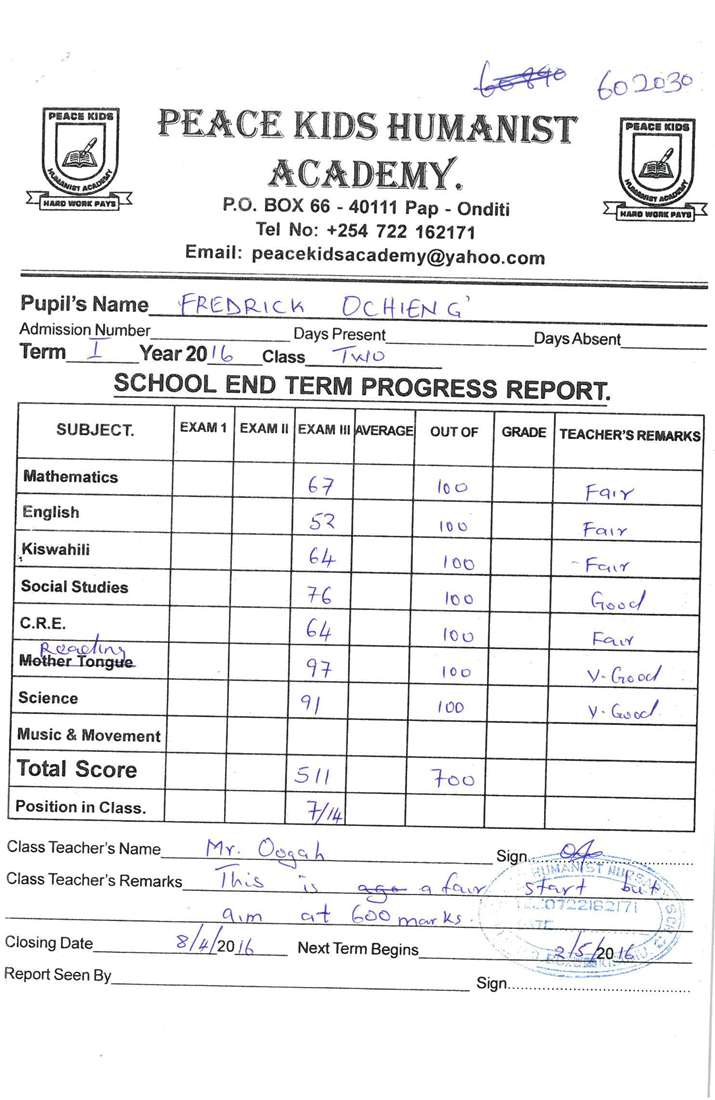 602030
PEACE KIDS
HUMANIST ACADEMY
HARD WORK PAYS
PEACE KIDS HUMANIST
ACADEMY.
P.O. BOX 66 - 40111 Pap - Onditi
Tel No: +254 722 162171
Email: peacekidsacademy@yahoo.com
PEACE KIDS
HUMANIST ACADEMY
HARD WORK PAYS
Pupil's Name FREDRICK OCHIENG'
Admission Number Days Present Days Absent
Term I Year 2016 Class TWO
SCHOOL END TERM PROGRESS REPORT.
SUBJECT. EXAM 1 EXAM II EXAM III AVERAGE OUT OF GRADE TEACHER'S REMARKS
Mathematics 67 100 Fair
English 52 100 Fair
Kiswahili 64 100 Fair
Social Studies 76 100 Good
C.R.E. 64 100 Fair
Reading
Mother Tongue 97 100 V-Good
Science 91 100 V-Good
Music & Movement
Total Score 511 700
Position in Class. 7/14
Class Teacher's Name Mr. Oogah Sign.
Class Teacher's Remarks This is a fair start but
aim at 600 marks.
HUMANIST
0722162171
Closing Date 8/4/2016 Next Term Begins 2/5/2016
Report Seen By Sign.